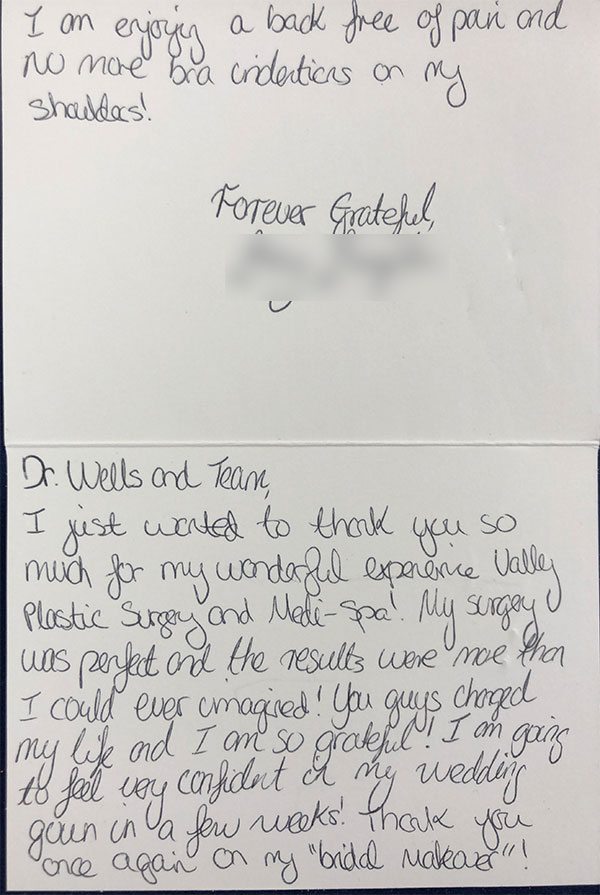 I am enjoying a back free of pain and
no more bra indentions on my
shoulders!
Forever Grateful,
Dr. Wells and Team,
I just wanted to thank you so
much for my wonderful experience Valley
Plastic Surgery and Medi-Spa! My surgery
was perfect and the results were more than
I could ever imagined! You guys changed
my life and I am so grateful! I am going
to feel very confident in my wedding
gown in a few weeks! Thank you
once again on my "bridal makeover"!